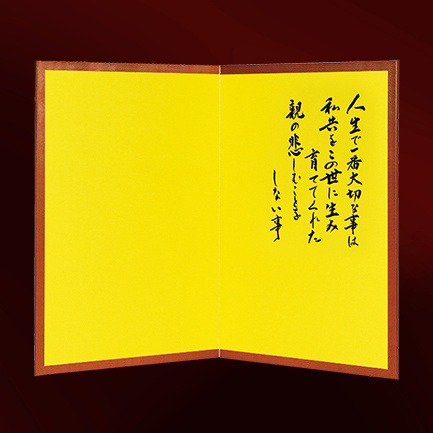 人生で一番大切な事は
私共をこの世に生み
育ててくれた
親の悲しむことを
しない事